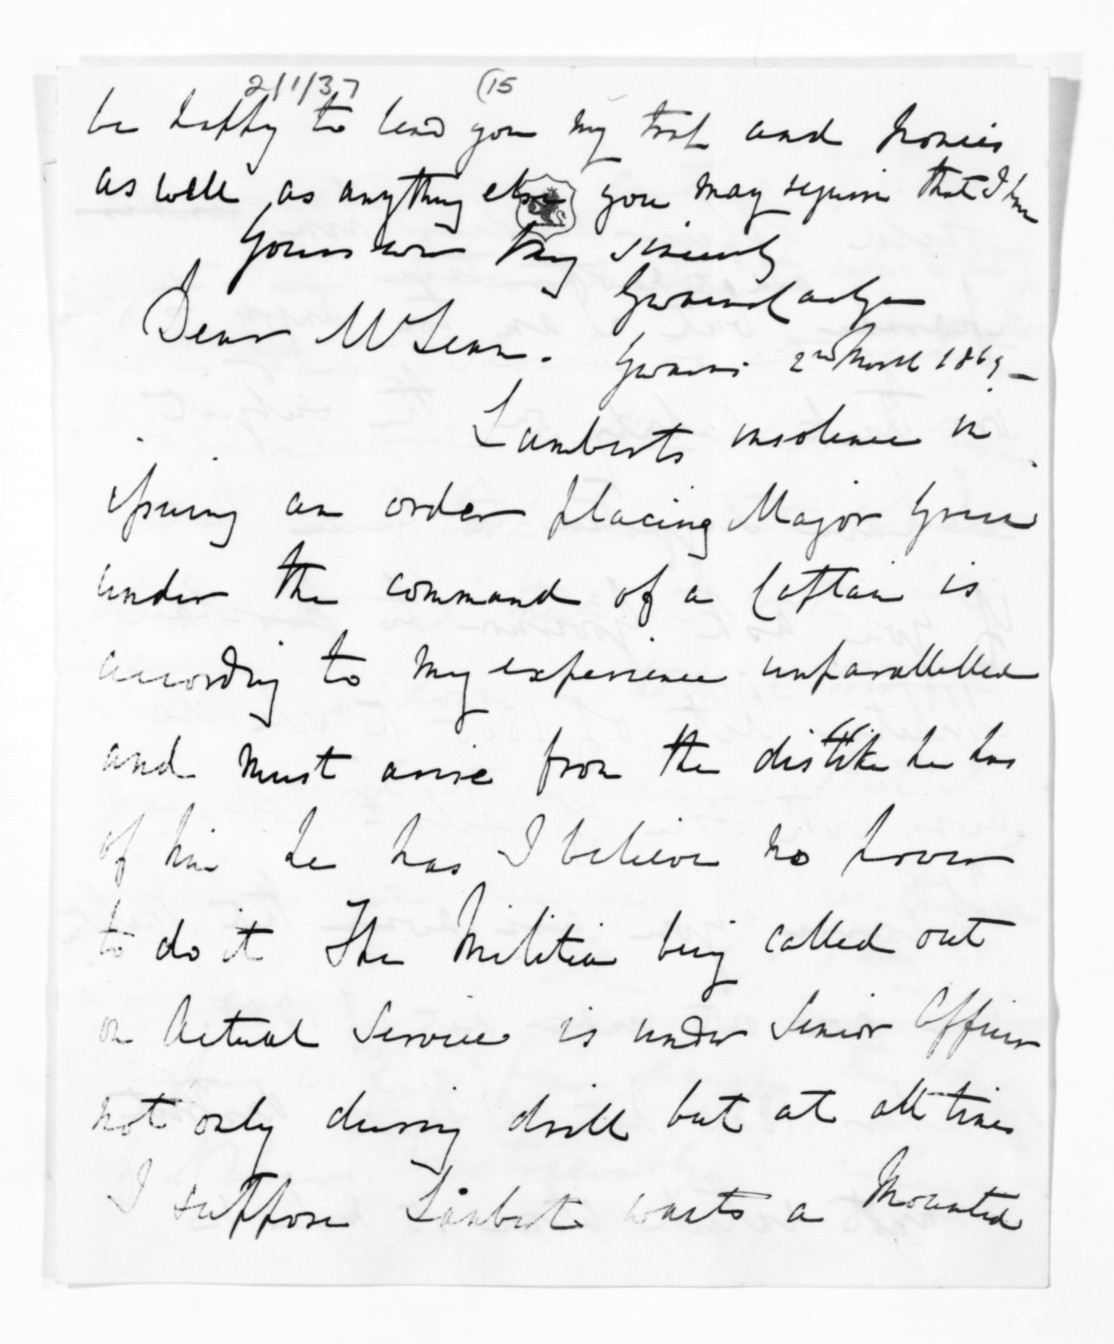 2/1/37 (15
be happy to lend you my trap and Ponies
as well as anything else you may require that I have
Yours now very sincerely
Dear McLean.
2nd March 1869
Lamberts insolence in
issuing an order placing Major Green
under the command of a Captain is
according to my experience unparallelled
and must arise from the dislike he has
of him he has I believe no power
to do it The Militia being called out
on Actual Service is under Senior Officer
not only during drill but at all times
I suppose Lambert wants a Mounted